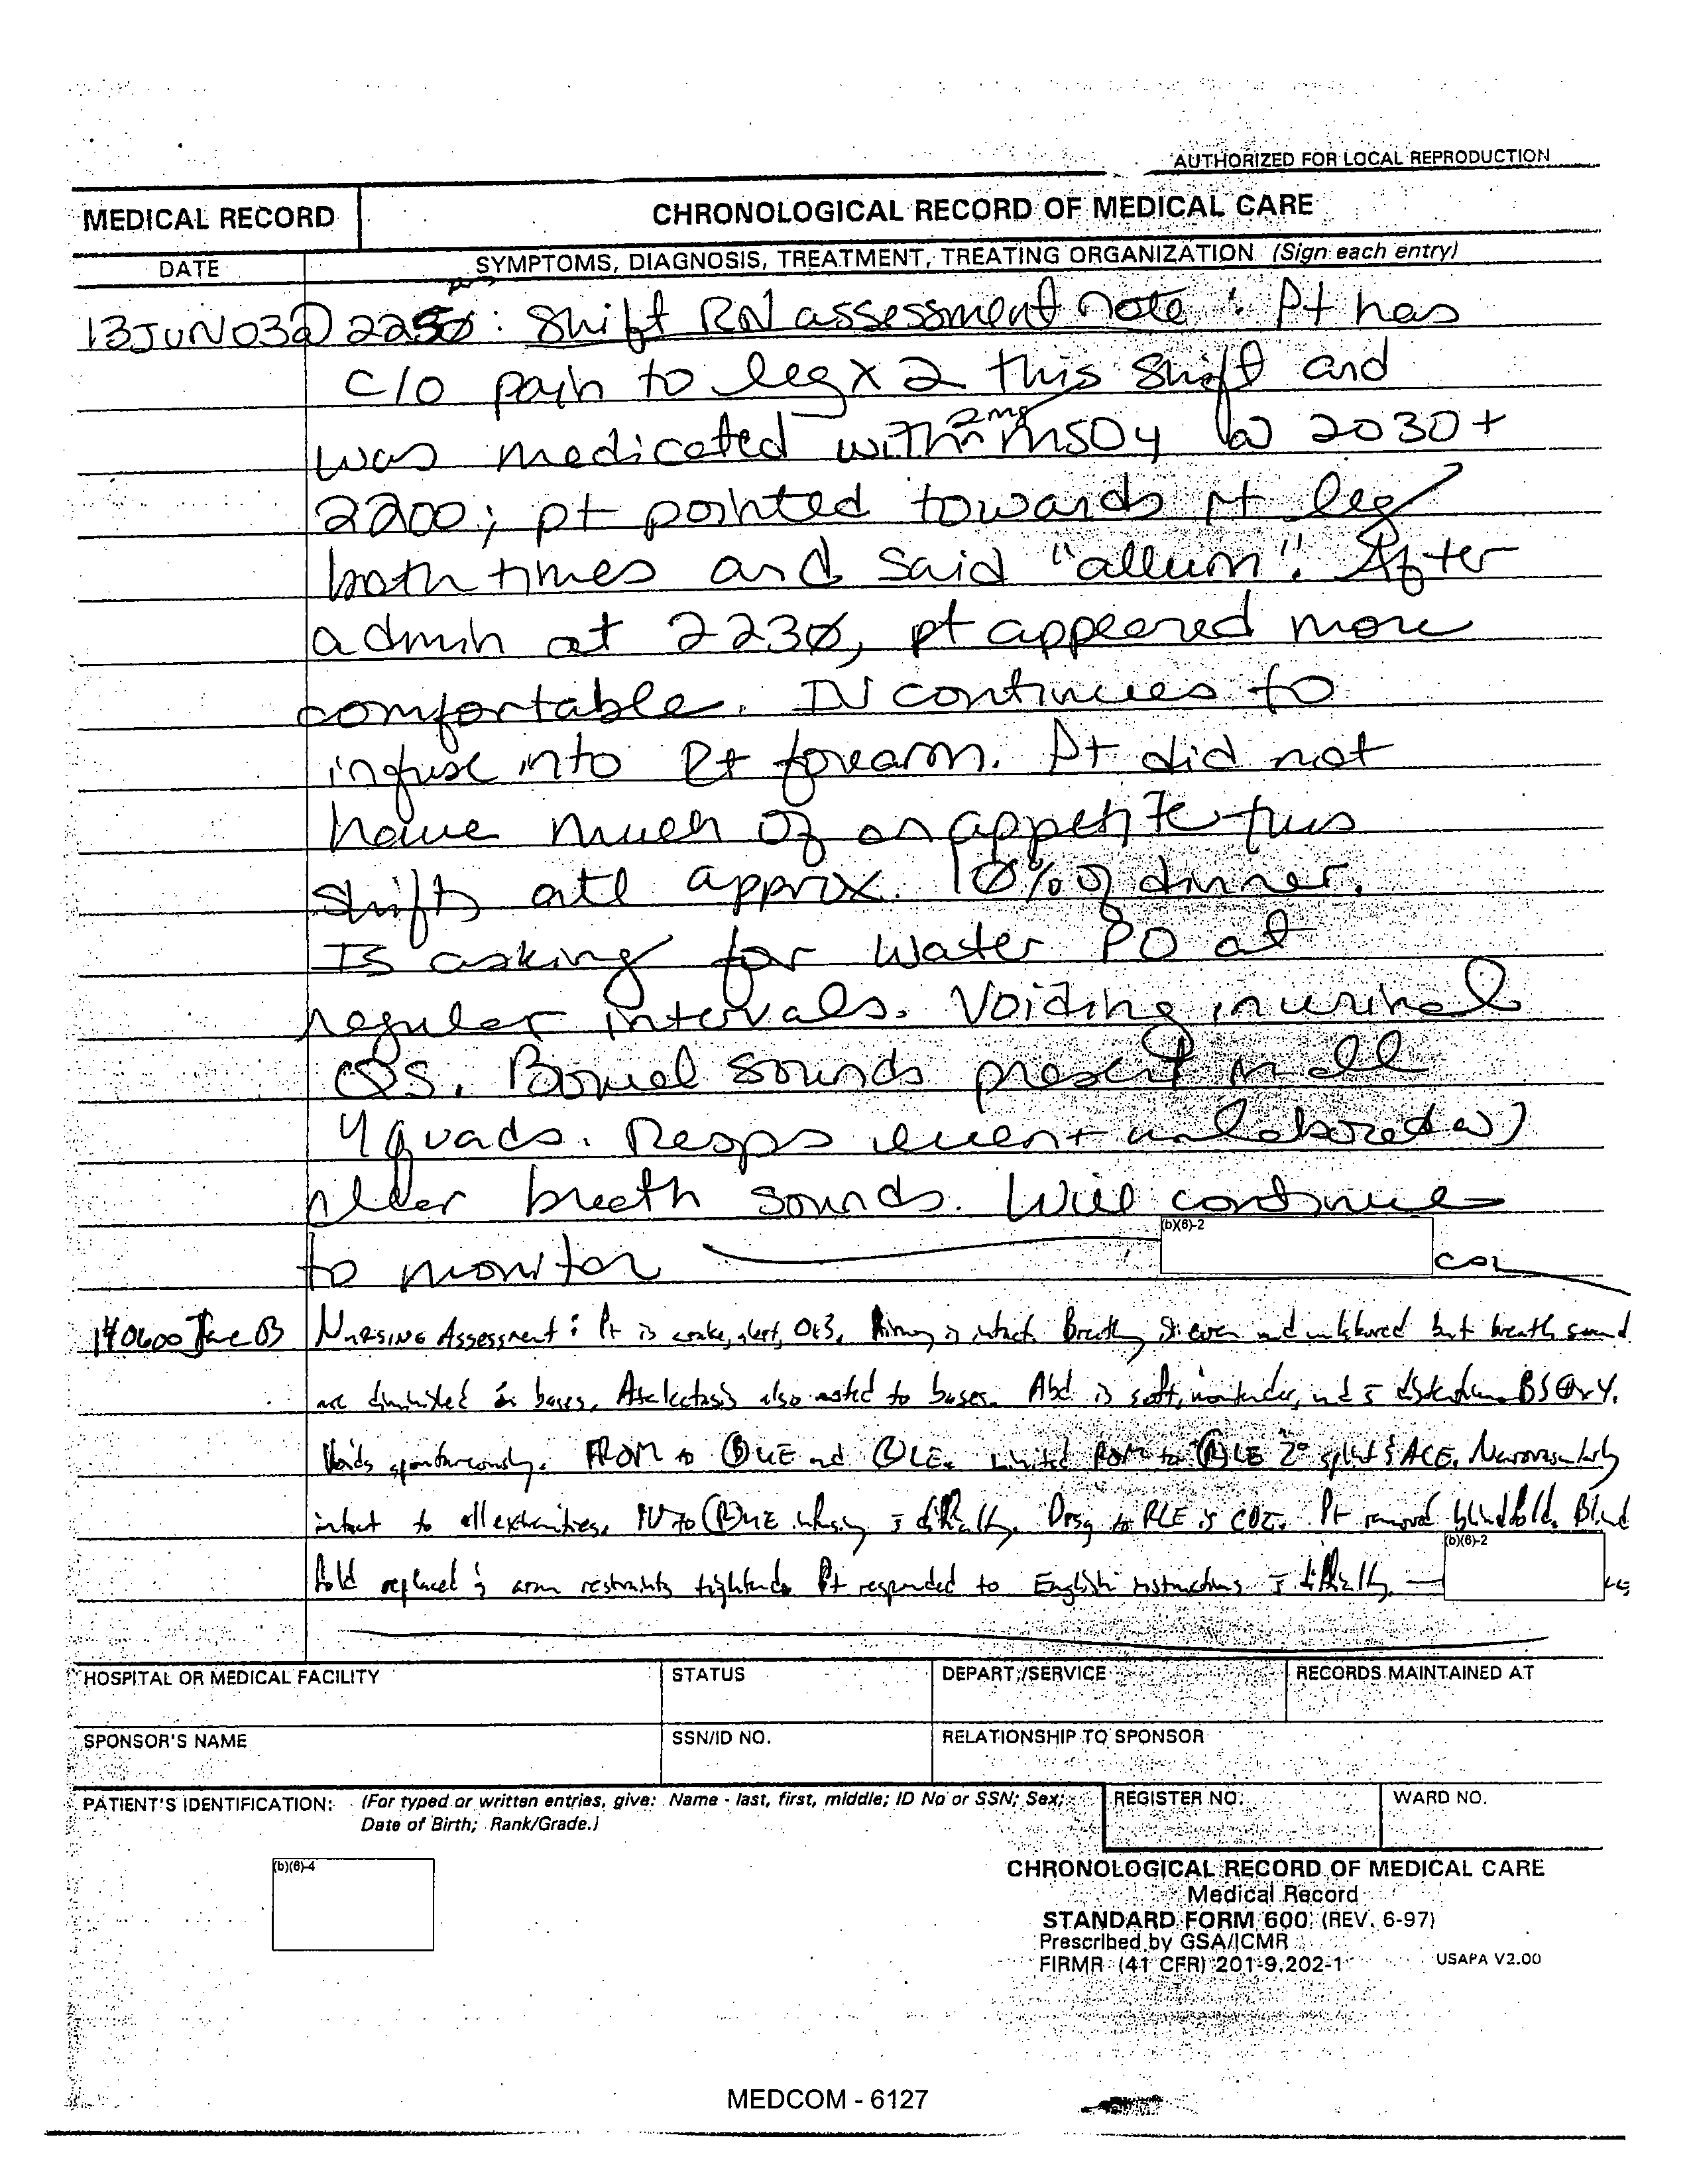 AUTHORIZED FOR LOCAL REPRODUCTION
MEDICAL RECORD
CHRONOLOGICAL RECORD OF MEDICAL CARE
DATE
SYMPTOMS, DIAGNOSIS, TREATMENT, TREATING ORGANIZATION (Sign each entry)
13JUN03@ 2250: Shift RN assessment note: Pt has
c/o pain to leg x 2 this shift and
was medicated with 2mg MSO4 @ 2030 +
2200; pt pointed towards rt leg
both times and said "allum". After
admin at 223Ø, pt appeared more
comfortable. IV continues to
infuse into Rt forearm. Pt did not
have much of an appetite this
shift, ate approx. 1Ø% of dinner.
Is asking for water PO at
regular intervals. Voiding in urinal
QS. Bowel sounds present in all
4 quads. Resps even + unlabored w)
clear breath sounds. Will continue
to monitor
(b)(6)-2
140600 June 03 Nursing Assessment: Pt is awake, alert, Ox3. Airway is intact. Breathing is even and unlabored but breath sound
are diminished in bases. Atelectasis also noted to bases. Abd is soft, nontender, and s̄ distention. BS ⊕x4.
Voids spontaneously. FROM to Ⓑ UE and Ⓛ LE. Limited ROM to Ⓡ LE 2° splint & ACE. Neurovascularly
intact to all extremities. IV to Ⓡ UE infusing s̄ difficulty. Drsg to RLE is CDI. Pt removed blindfold. Blind
fold replaced & arm restraints tightened. Pt responded to English instructions s̄ difficulty.
(b)(6)-2
HOSPITAL OR MEDICAL FACILITY
STATUS
DEPART./SERVICE
RECORDS MAINTAINED AT
SPONSOR'S NAME
SSN/ID NO.
RELATIONSHIP TO SPONSOR
PATIENT'S IDENTIFICATION: (For typed or written entries, give: Name - last, first, middle; ID No or SSN; Sex;
Date of Birth; Rank/Grade.)
REGISTER NO.
WARD NO.
(b)(6)-4
CHRONOLOGICAL RECORD OF MEDICAL CARE
Medical Record
STANDARD FORM 600 (REV. 6-97)
Prescribed by GSA/ICMR
FIRMR (41 CFR) 201-9.202-1
USAPA V2.00
MEDCOM - 6127